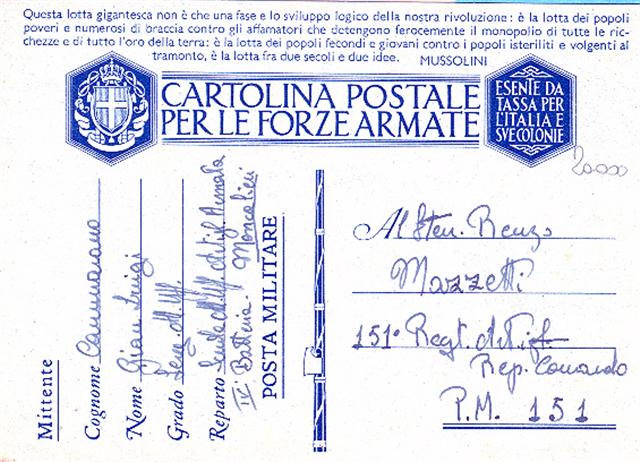 Questa lotta gigantesca non è che una fase e lo sviluppo logico della nostra rivoluzione : è la lotta dei popoli
poveri e numerosi di braccia contro gli affamatori che detengono ferocemente il monopolio di tutte le ric-
chezze e di tutto l'oro della terra: è la lotta dei popoli fecondi e giovani contro i popoli isteriliti e volgenti al
tramonto, è la lotta fra due secoli e due idee. MUSSOLINI
CARTOLINA POSTALE
PER LE FORZE ARMATE
ESENTE DA
TASSA PER
L'ITALIA E
SVE COLONIE
20000
Mittente
Cognome
Nome Gian Luigi
Grado
Reparto
IVª Batteria - Moncalieri
POSTA MILITARE
Al Sten. Renzo
Mazzetti
151º Regt. Artigl.
Rep. Comando
P.M. 151